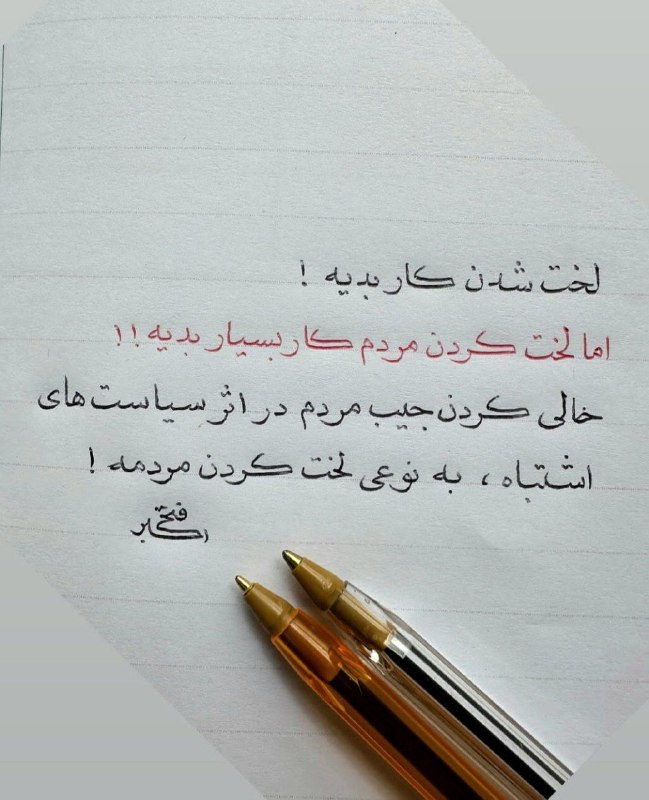 لخت شدن کار بدیه !
اما لخت کردن مردم کار بسیار بدیه !!
خالی کردن جیب مردم در اثر سیاست های
اشتباه ، به نوعی لخت کردن مردمه !
فتح
اکبر